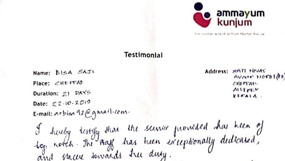 ammayum
kunjum
Testimonial
Name: BISA SAJI
Place: CHETPAD
Duration: 21 DAYS
Date: 22-10-2019
E-mail: @gmail.com
Address:
KERALA
I hereby testify that the service provided has been of
top notch. The staff has been exceptionally dedicated,
and sincere towards their duty.